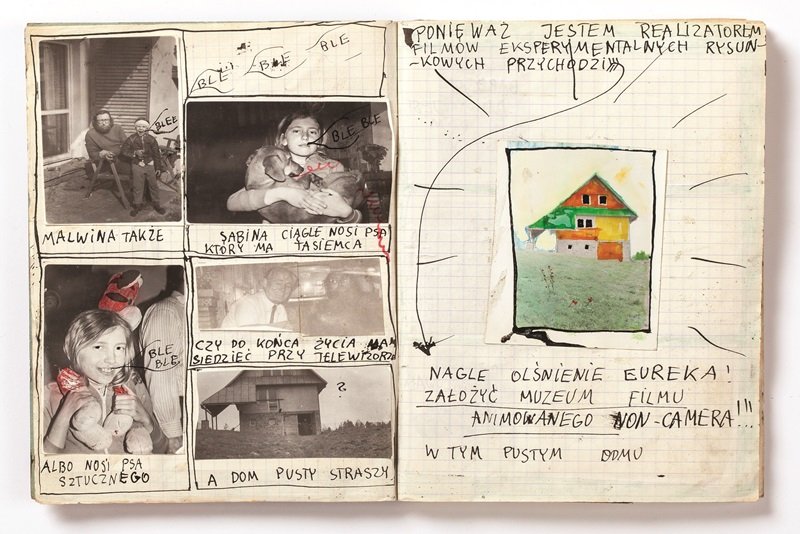 BLEE
MALWINA TAKŻE
BLE
BLE
BLE
BLE BLE
SABINA CIĄGLE NOSI PSA
KTÓRY MA TASIEMCA
BLE
BLE
ALBO NOSI PSA
SZTUCZNEGO
CZY DO KOŃCA ŻYCIA MAM
SIEDZIEĆ PRZY TELEWIZORZE
?
A DOM PUSTY STRASZY
PONIEWAŻ JESTEM REALIZATOREM
FILMÓW EKSPERYMENTALNYCH RYSUN-
-KOWYCH PRZYCHODZI!!!
NAGLE OLŚNIENIE EUREKA!
ZAŁOŻYĆ MUZEUM FILMU
ANIMOWANEGO NON-CAMERA!!!
W TYM PUSTYM DOMU